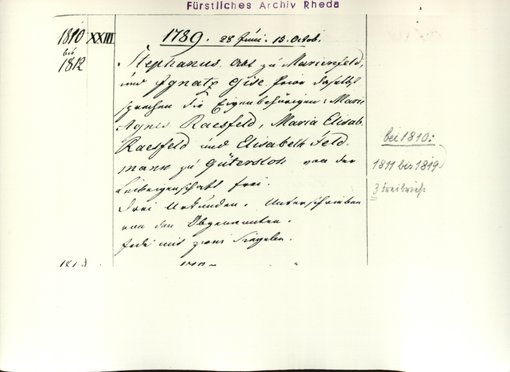 Fürstliches Archiv Rheda
1810 XXIII
bis
1812
1789. 28 Juni. 18. Octob.
Stephanus Abt zu Marienfeld,
und Ignatz Gise Prior daselbst
sprechen die Eigenbehörigen: Maria
Agnes Raesfeld, Maria Elisab.
Raesfeld und Elisabeth Feld
mann zu Gütersloh von der
Leibeigenschaft frei.
Drei Urkunden. Unterschrieben
von den Obgenannten.
Jede mit zwei Siegeln.
bei 1810:
1811 bis 1819
3 Freibriefe